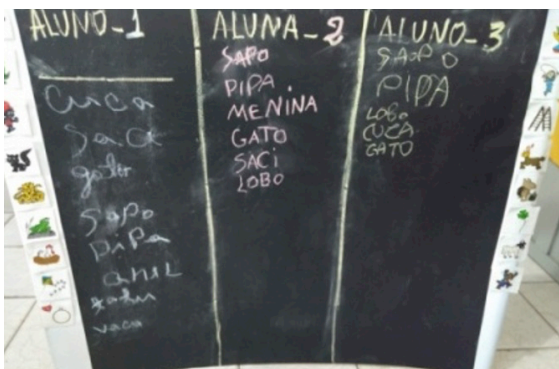 ALUNO-1
cuca
Saci
gato
Sapo
PiPa
vaca
ALUNA-2
SAPO
PIPA
MENINA
GATO
SACi
LOBO
ALUNO-3
SAPO
PIPA
LOBO
CUCA
GATO